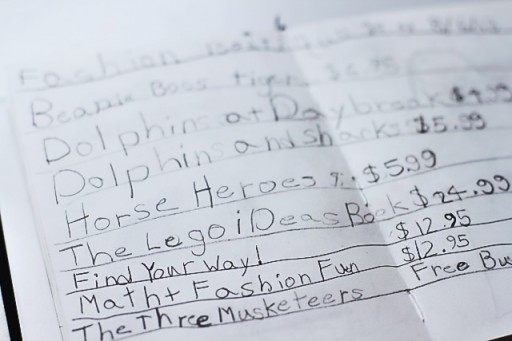 Fashion
Beanie Boos tiger $6.95
Dolphins at Daybreak $4.99
Dolphins and sharks $5.99
Horse Heroes $5.99
The Lego iDeas Book $24.99
Find Your Way! $12.95
Math + Fashion Fun $12.95
The Three Musketeers Free Bu